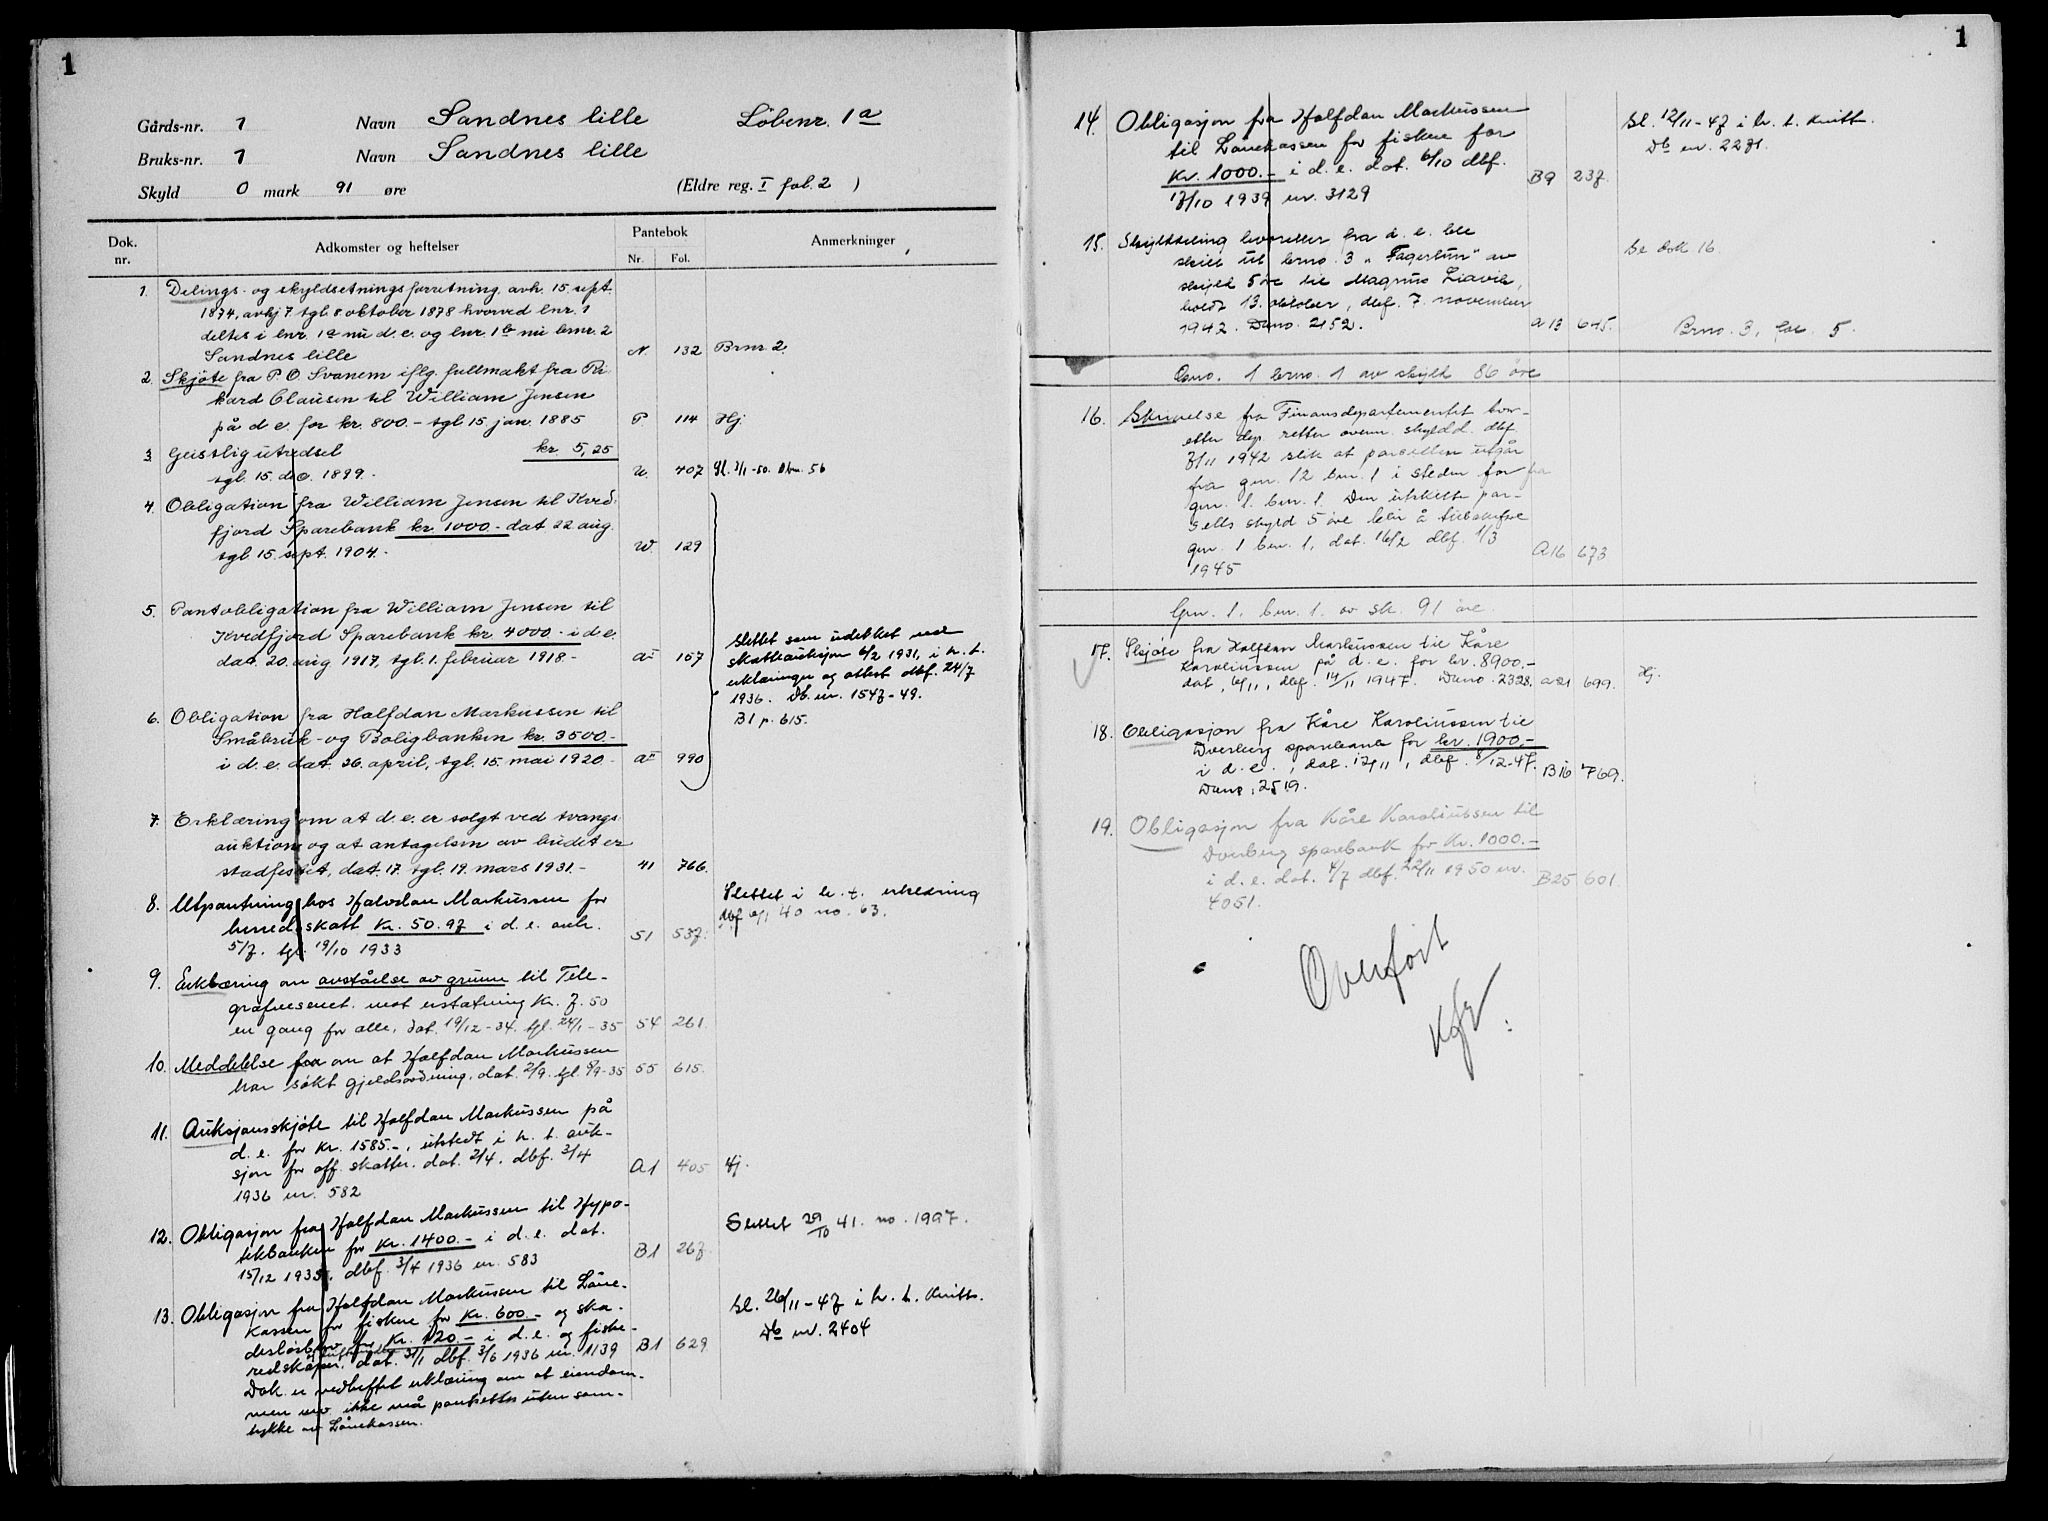 1
Gårds-nr. 1 Navn Sandnes lille Löbenr. 1a
Bruks-nr. 1 Navn Sandnes lille
Skyld 0 mark 91 øre (Eldre reg. I fol. 2 )
Dok. nr. Adkomster og heftelser Pantebok Nr. Fol. Anmerkninger
1. Delings- og skyldsetningsforretning avh. 15. sept.
1874, avhj 7. tgl. 8. oktober 1878 hvorved lnr. 1
deltes i lnr. 1a nu d.e. og lnr. 1b nu brnr. 2
Sandnes lille N. 132 Brnr. 2.
2. Skjöte fra P. O. Svanem iflg. fullmakt fra Ri-
kard Clausen til William Jensen
på d.e. for kr. 800.- tgl. 15. jan. 1885 P 114 Hj.
3. Geistlig utredsel kr. 5,25
tgl. 15. dec. 1899. U. 407 Sl. 7/1-50. Dbnr. 56
4. Obligation fra William Jensen til Kved-
fjord Sparebank kr. 1000.- dat 22 aug.
tgl. 15. sept. 1904. W. 129
5. Pantobligation fra William Jensen til
Kvedfjord Sparebank kr. 4000.- i d.e.
dat. 20. aug 1917, tgl. 1. februar 1918.- aI 157
6. Obligation fra Halfdan Markussen til
Småbruk- og Boligbanken kr. 3500.-
i d.e. dat. 26. april, tgl. 15. mai 1920.- aII 990
Slettet som udekket ved
skatteauksjon 6/2 1931, i h.t.
erklæringer og attest dbf. 24/7
1936. Db. nr. 1547-49.
B1 p. 615.
7. Erklæring om at d.e. er solgt ved tvangs-
auktion og at antagelsen av budet er
stadfestet, dat. 17. tgl. 19. mars 1931.- 41 766.
8. Utpantning hos Halvdan Markussen for
herredsskatt kr. 50.97 i d.e. avh.
5/7. tgl. 19/10 1933 51 537. Slettet i h.t. erklæring
dbf 6/1 40 no. 63.
9. Erklæring om avståelse av grunn til Tele-
grafvesenet mot erstatning kr. 7.50
en gang for alle, dat. 19/12-34. tgl. 24/1-35 54 261.
10. Meddelelse fra om at Halfdan Markussen
har søkt gjeldsordning, dat. 2/9. tgl. 9/9-35 55 615.
11. Auksjonsskjøte til Halfdan Markussen på
d.e. for kr. 1585.-, utstedt i h.t. auk-
sjon for off. skatter. dat. 2/4. dbf. 3/4
1936 nr. 582 A1 405 Hj.
12. Obligasjon fra Halfdan Markussen til Hypo-
tekbanken for kr. 1400.- i d.e. dat.
15/12 1935, dbf. 3/4 1936 nr. 583 B1 267. Slettet 29/10 41. no. 1997.
13. Obligasjon fra Halfdan Markussen til Låne-
kassen for fiskere for kr. 600.- og ska-
desløsbrev for kr. 120.- i d.e. og fiske-
redskaper, dat. 31/1 dbf. 3/6 1936 nr. 1139 B1 629 Sl. 26/11-47 i h.t. kvitt.
Db nr. 2404
Dok. er vedheftet erklæring om at eiendom-
men mv. ikke må pantsettes uten sam-
tykke av Lånekassen.
1
14. Obligasjon fra Halfdan Markussen
til Lånekassen for fiskere for
kr. 1000.- i d.e. dat. 6/10 dbf.
17/10 1939 nr. 3129 B9 237. Sl. 12/11-47 i h.t. kvitt.
Db nr. 2271.
15. Skylddeling hvoretter fra d.e. ble
skilt ut brno. 3 „Fagertun" av
skyld 5 øre til Magnus Liavik,
holdt 13. oktober, dbf. 7. november
1942. Dano. 2152. A13 645. Se dok 16. Brno. 3, fol. 5.
Gno. 1 brno. 1 av skyld 86 øre
16. Skrivelse fra Finansdepartementet hvor-
etter dep. retter ovenn. skyldd. dbf
7/11 1942 slik at parsellen utgår
fra gnr. 12 bnr. 1 i steden for fra
gnr. 1. bnr. 1. Den utskilte par-
sells skyld 5 øre blir å tilbakeføre
gnr. 1 bnr. 1, dat. 16/2 dbf. 1/3
1945 A16 673
Gnr. 1. bnr. 1. av sk. 91 øre.
17. Skjøte fra Halfdan Markussen til Kåre
Karoliussen på d.e. for kr. 8900.-
dat. 6/11, dbf. 14/11 1947. Dano. 2328. a21 699. Hj.
18. Obligasjon fra Kåre Karoliussen til
Dverberg sparebank for kr. 1900.-
i d.e., dat. 12/11, dbf. 8/12-47. B16 769.
Dano. 2519.
19. Obligasjon fra Kåre Karoliussen til
Dverberg sparebank for kr. 1000.-
i d.e. dat. 4/7 dbf. 22/11 1950 nr.
4051. B25 601.
Overført